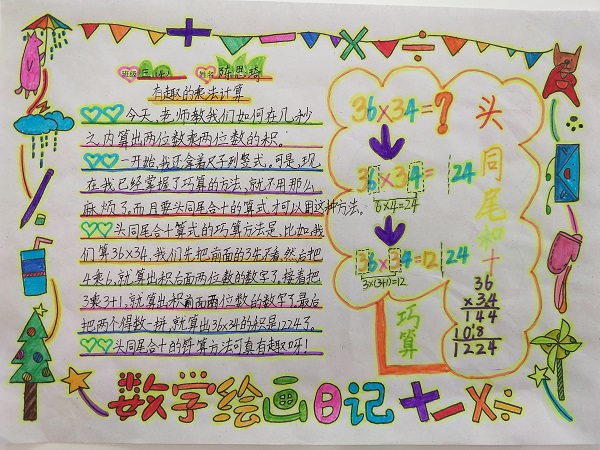 班级 三(4) 姓名 陈思琦
有趣的乘法计算
今天,老师教我们如何在几秒
之内算出两位数乘两位数的积。
一开始,我还拿着叉子列竖式。可是,现
在我已经掌握了巧算的方法,就不用那么
麻烦了,而且要头同尾合十的算式才可以用这种方法。
头同尾合十算式的巧算方法是,比如我
们算36×34,我们先把前面的3先不看,然后把
4乘6,就算出积后面两位数的数字了,接着把
3乘3+1,就算出积前面两位数的数字了,最后
把两个得数一拼,就算出36×34的积是1224了。
头同尾合十的算方法可真有趣呀!
36×34=?
36×34= 24
6×4=24
36×34=12 24
3×(3+1)=12
头同尾和十
巧算
36
×34
144
108
1224
数学绘画日记+-×÷